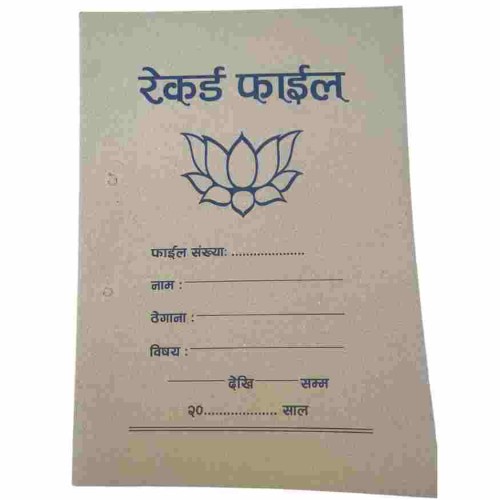 रेकर्ड फाईल
फाईल संख्या: ....................
नाम :
ठेगाना :
विषय :
देखि सम्म
२०.................... साल